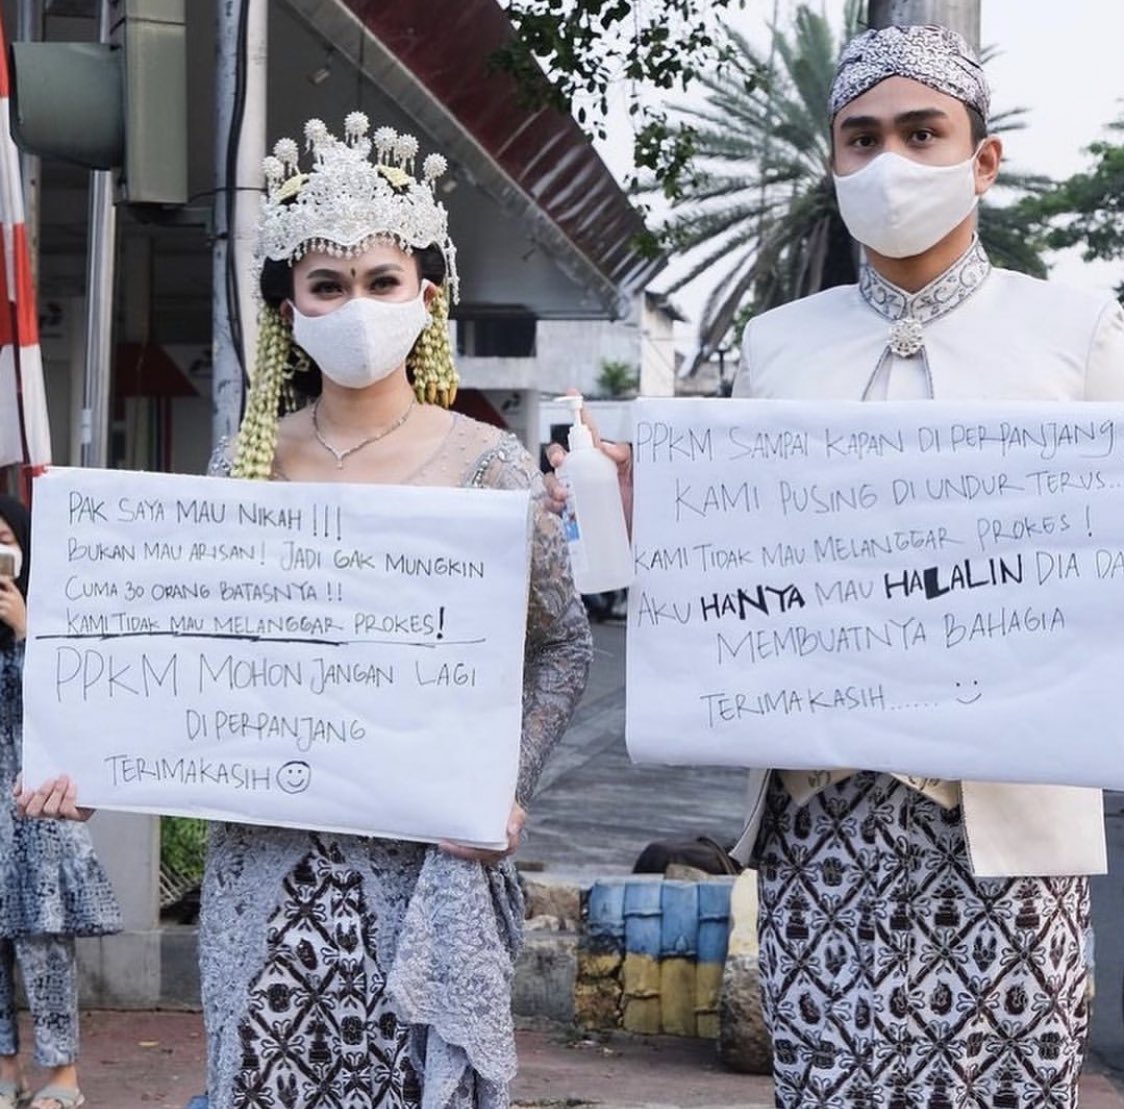 PAK SAYA MAU NIKAH !!!
BUKAN MAU ARISAN! JADI GAK MUNGKIN
CUMA 30 ORANG BATASNYA !!
KAMI TIDAK MAU MELANGGAR PROKES!
PPKM MOHON JANGAN LAGI
DI PERPANJANG
TERIMAKASIH
PPKM SAMPAI KAPAN DI PERPANJANG
KAMI PUSING DI UNDUR TERUS..
KAMI TIDAK MAU MELANGGAR PROKES !
AKU HANYA MAU HALALIN DIA DA
MEMBUATNYA BAHAGIA
TERIMAKASIH...... :)